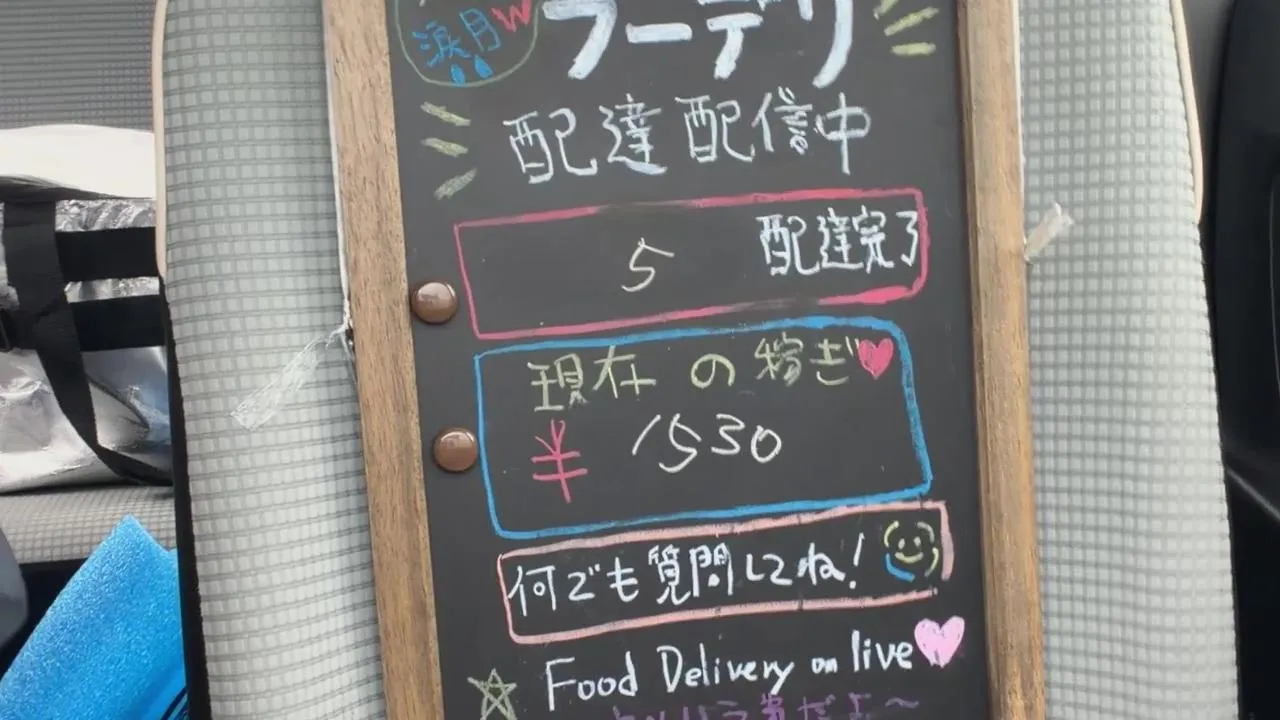 涙月W
フーデリ
配達配信中
5 配達完了
現在の稼ぎ
¥ 1530
何でも質問してね!
Food Delivery on live